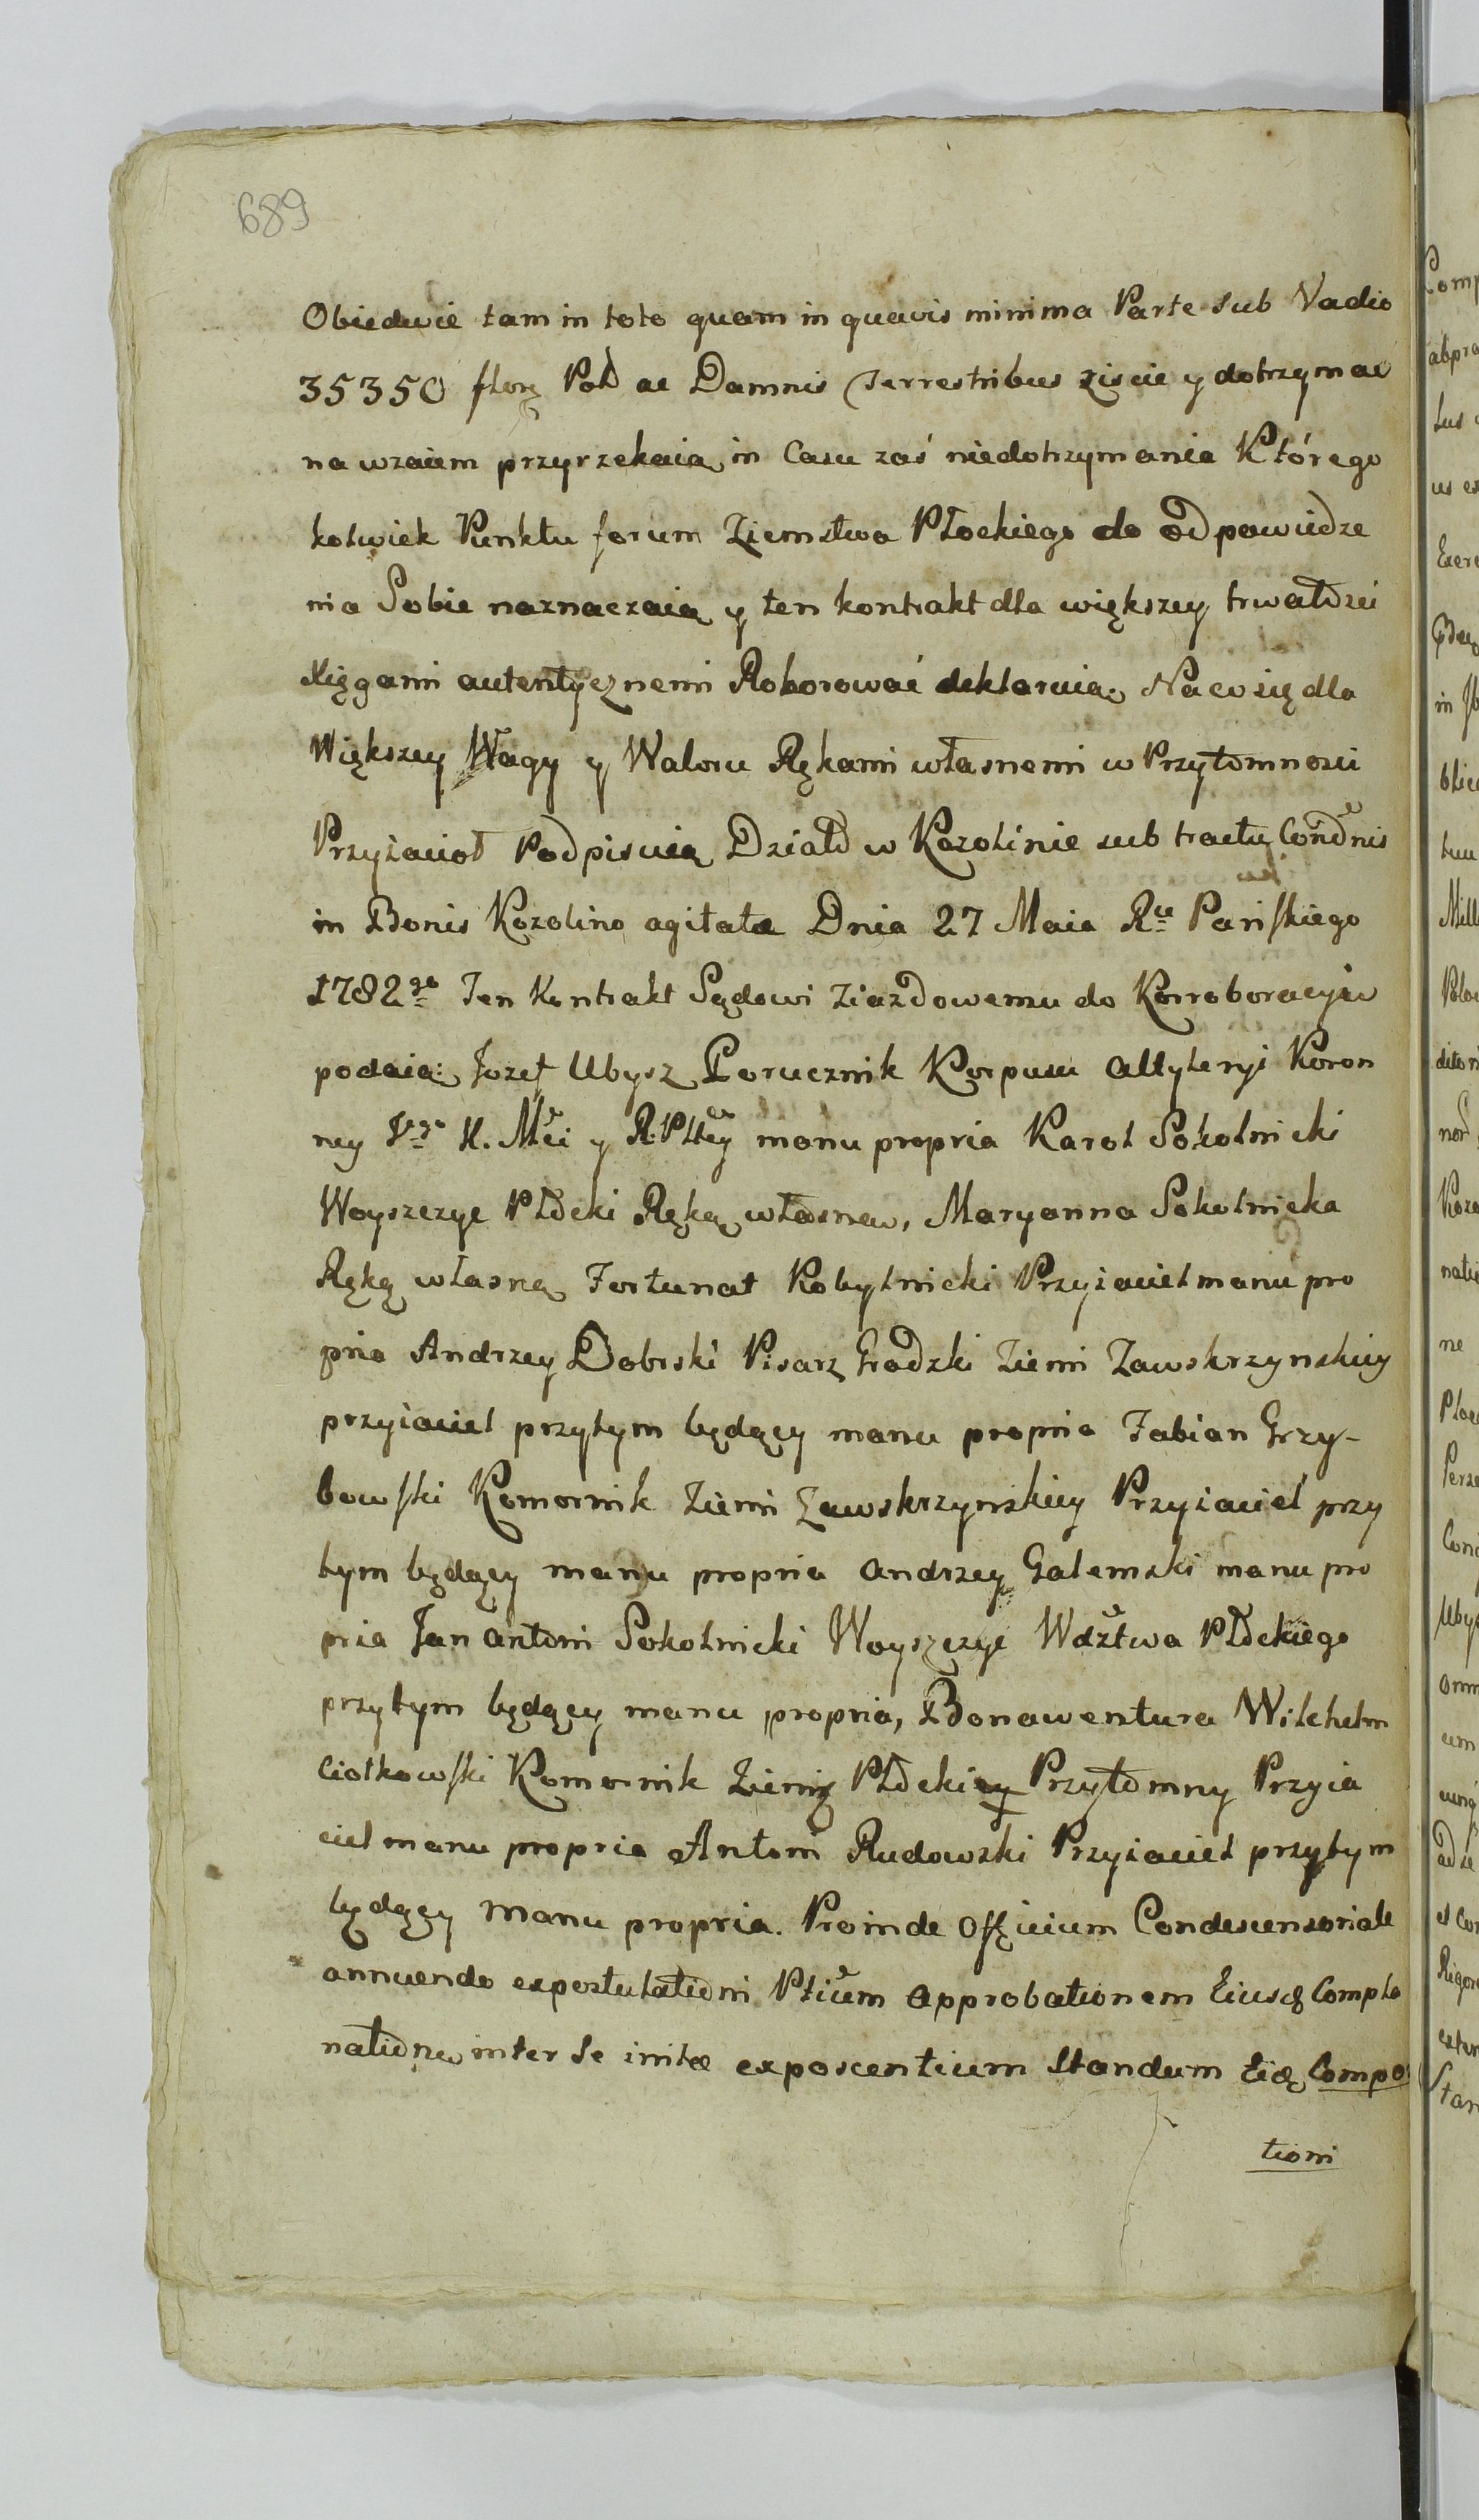 689
Obiedwie tam in toto quam in quavis minima Parte sub Vadio
35350 flor Pol ac Damnis Terrestribus ziscic y dotrzymac
na wzaiem przyrzekaią in Casu zaś niedotrzymania Którego
kolwiek Punktu forum Ziemstwa Płockiego do odpowiedze
nia Sobie naznaczaią y ten kontrakt dla większey trwałości
Xięgami autentycznemi Roborować deklaruią, Na co się dla
Większey Wagy y Waloru Rękami własnemi w Przytomnosci
Przyiacioł Podpisuią Działo w Kozolinie sub tractu Condñis
in Bonis Kozolino agitatæ Dnia 27 Maia Ru Pańskiego
1782go Ten Kontrakt Sądowi Ziazdowemu do Korroboracyi
podaią: Jozef Ubysz Porucznik Korpusu Artyleryi Koron
ney J K. Mci y RPltey manu propria Karol Sokolnicki
Woyszczyc Płocki Ręką własną, Maryanna Sokolnicka
Ręką własną Fortunat Kobylnicki Przyiaciel manu pro
pria Andrzey Dobrski Pisarz Grodzki Ziemi Zawskrzynskiey
przyiaciel przytym będący manu propria Fabian Grzy-
bowski Komornik Ziemi Zawskrzynskiey Przyiaciel przy
tym będący manu propria Andrzey Galemski manu pro
pria Jan Antoni Sokolnicki Woyszczyc Wdztwa Płockiego
przytym będący manu propria, Bonawentura Wilchelm
Ciołkowski Komornik Ziemi Płockiey Przytomny Przyia
ciel manu propria Antoni Rudowski Przyiaciel przytym
będący manu propria. Proinde Officium Condescensoriale
annuendo expostulationi Ptium Approbationem Eiusd Compla
nationis inter se initæ exposcentium Standum Eid Compo
tioni